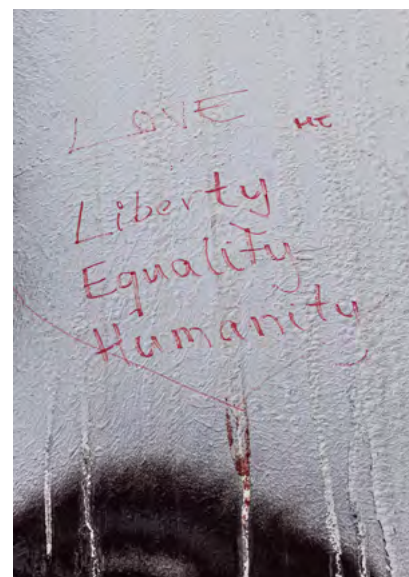 LOVE
Liberty
Equality
Humanity